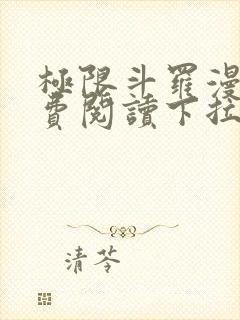 極限斗羅漫
費閱讀下拉
清苓